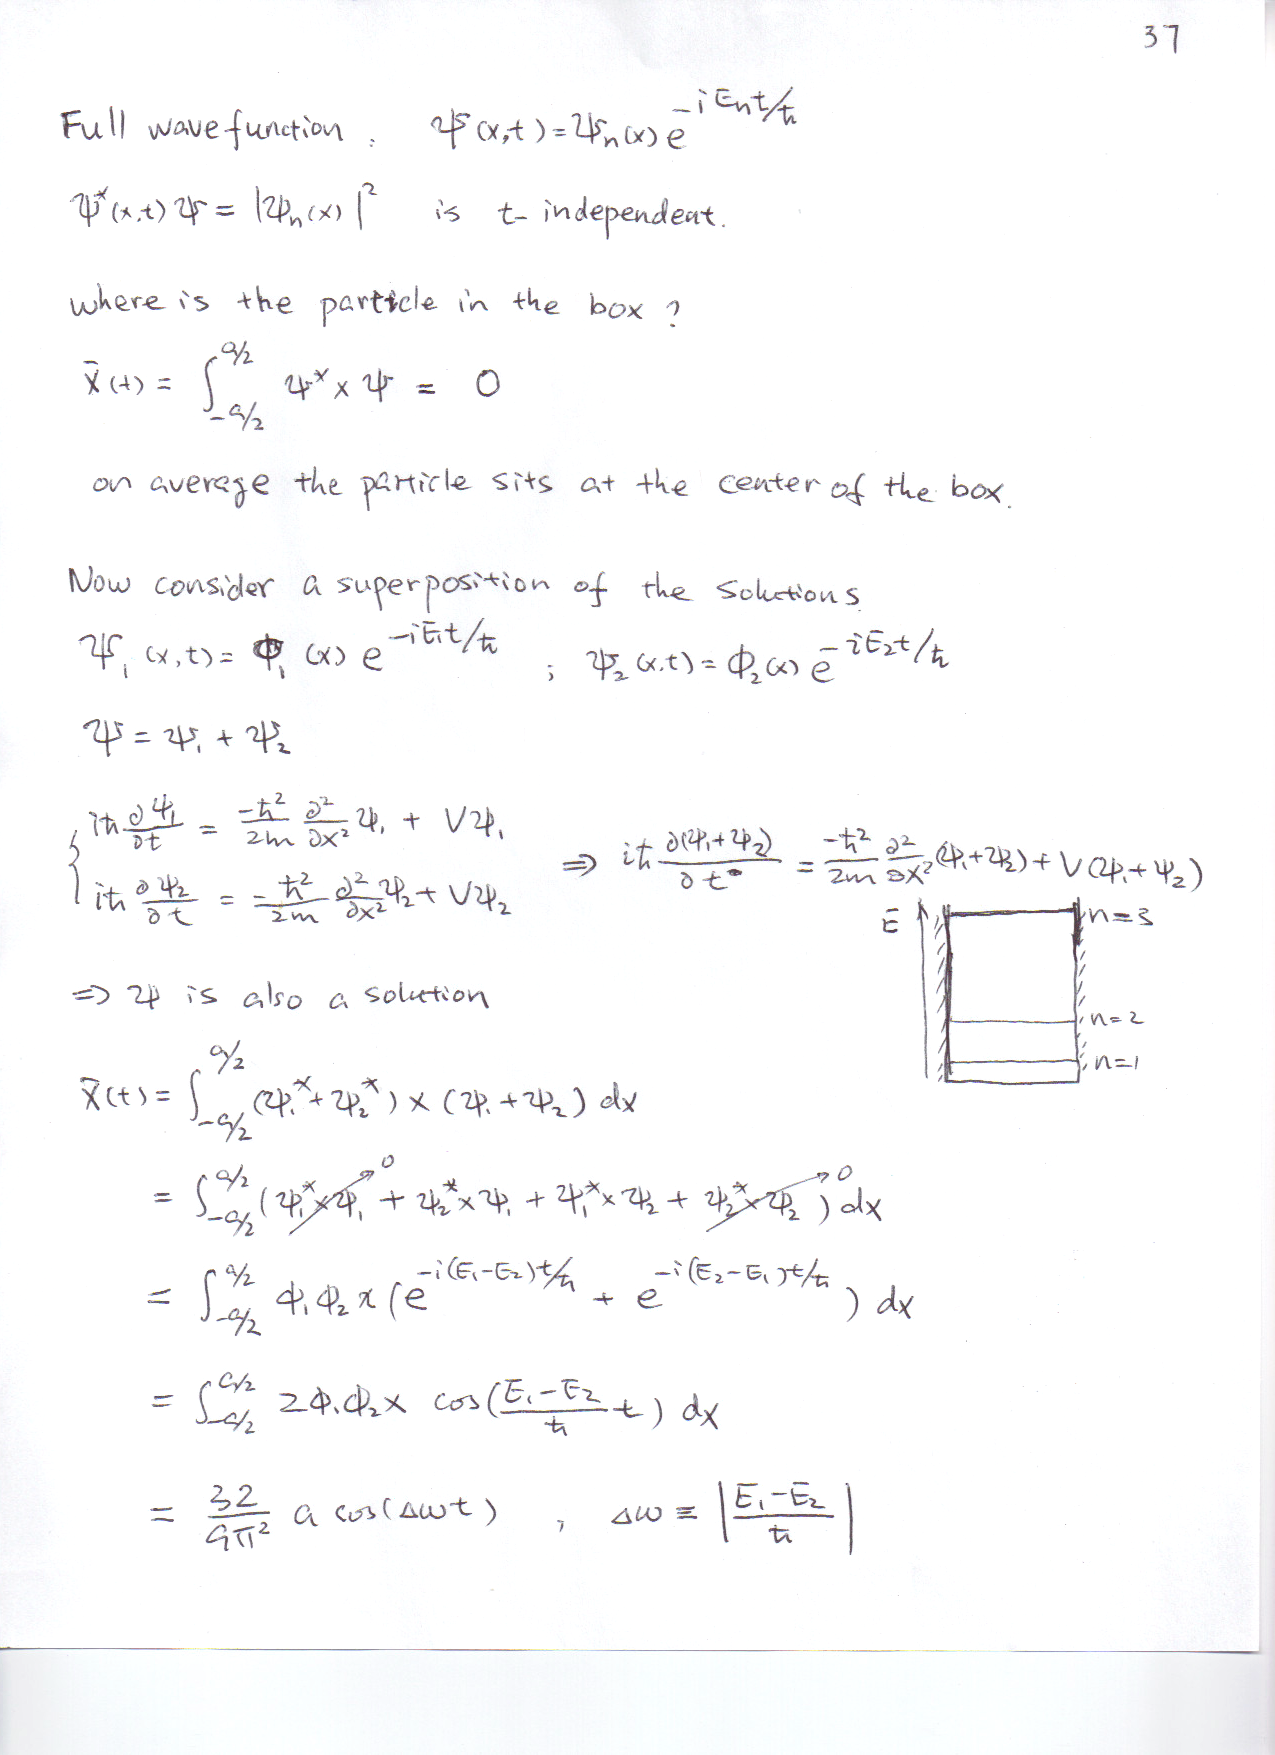 37
Full wavefunction, Ψ(x,t) = Ψn(x) e^{-iEnt/ħ}
Ψ*(x,t) Ψ = |Ψn(x)|² is t-independent.
where is the particle in the box ?
x̄(t) = ∫_{-a/2}^{a/2} Ψ* x Ψ = 0
on average the particle sits at the center of the box.
Now consider a superposition of the solutions
Ψ₁(x,t) = Φ₁(x) e^{-iE₁t/ħ} ; Ψ₂(x,t) = Φ₂(x) e^{-iE₂t/ħ}
Ψ = Ψ₁ + Ψ₂
iħ ∂Ψ₁/∂t = -ħ²/2m ∂²/∂x² Ψ₁ + VΨ₁
iħ ∂Ψ₂/∂t = -ħ²/2m ∂²/∂x² Ψ₂ + VΨ₂
⇒ iħ ∂(Ψ₁+Ψ₂)/∂t = -ħ²/2m ∂²/∂x² (Ψ₁+Ψ₂) + V(Ψ₁+Ψ₂)
E
n=3
n=2
n=1
⇒ Ψ is also a solution
x̄(t) = ∫_{-a/2}^{a/2} (Ψ₁* + Ψ₂*) x (Ψ₁ + Ψ₂) dx
= ∫_{-a/2}^{a/2} (Ψ₁*xΨ₁ →0 + Ψ₂*xΨ₁ + Ψ₁*xΨ₂ + Ψ₂*xΨ₂ →0) dx
= ∫_{-a/2}^{a/2} Φ₁Φ₂ x (e^{-i(E₁-E₂)t/ħ} + e^{-i(E₂-E₁)t/ħ}) dx
= ∫_{-a/2}^{a/2} 2Φ₁Φ₂x cos((E₁-E₂)/ħ t) dx
= 32/9π² a cos(Δωt) , Δω ≡ |(E₁-E₂)/ħ|